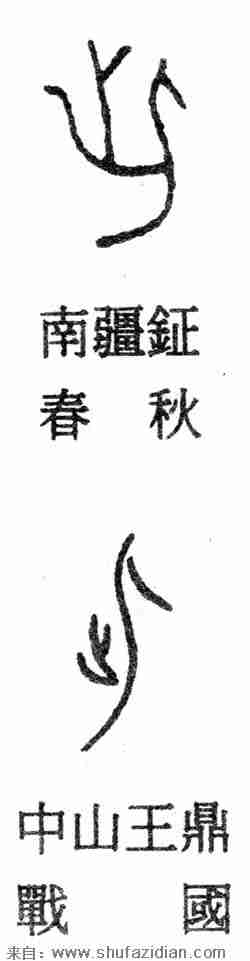 南疆鉦
春 秋
中山王鼎
戰 國
来自：www.shufazidian.com